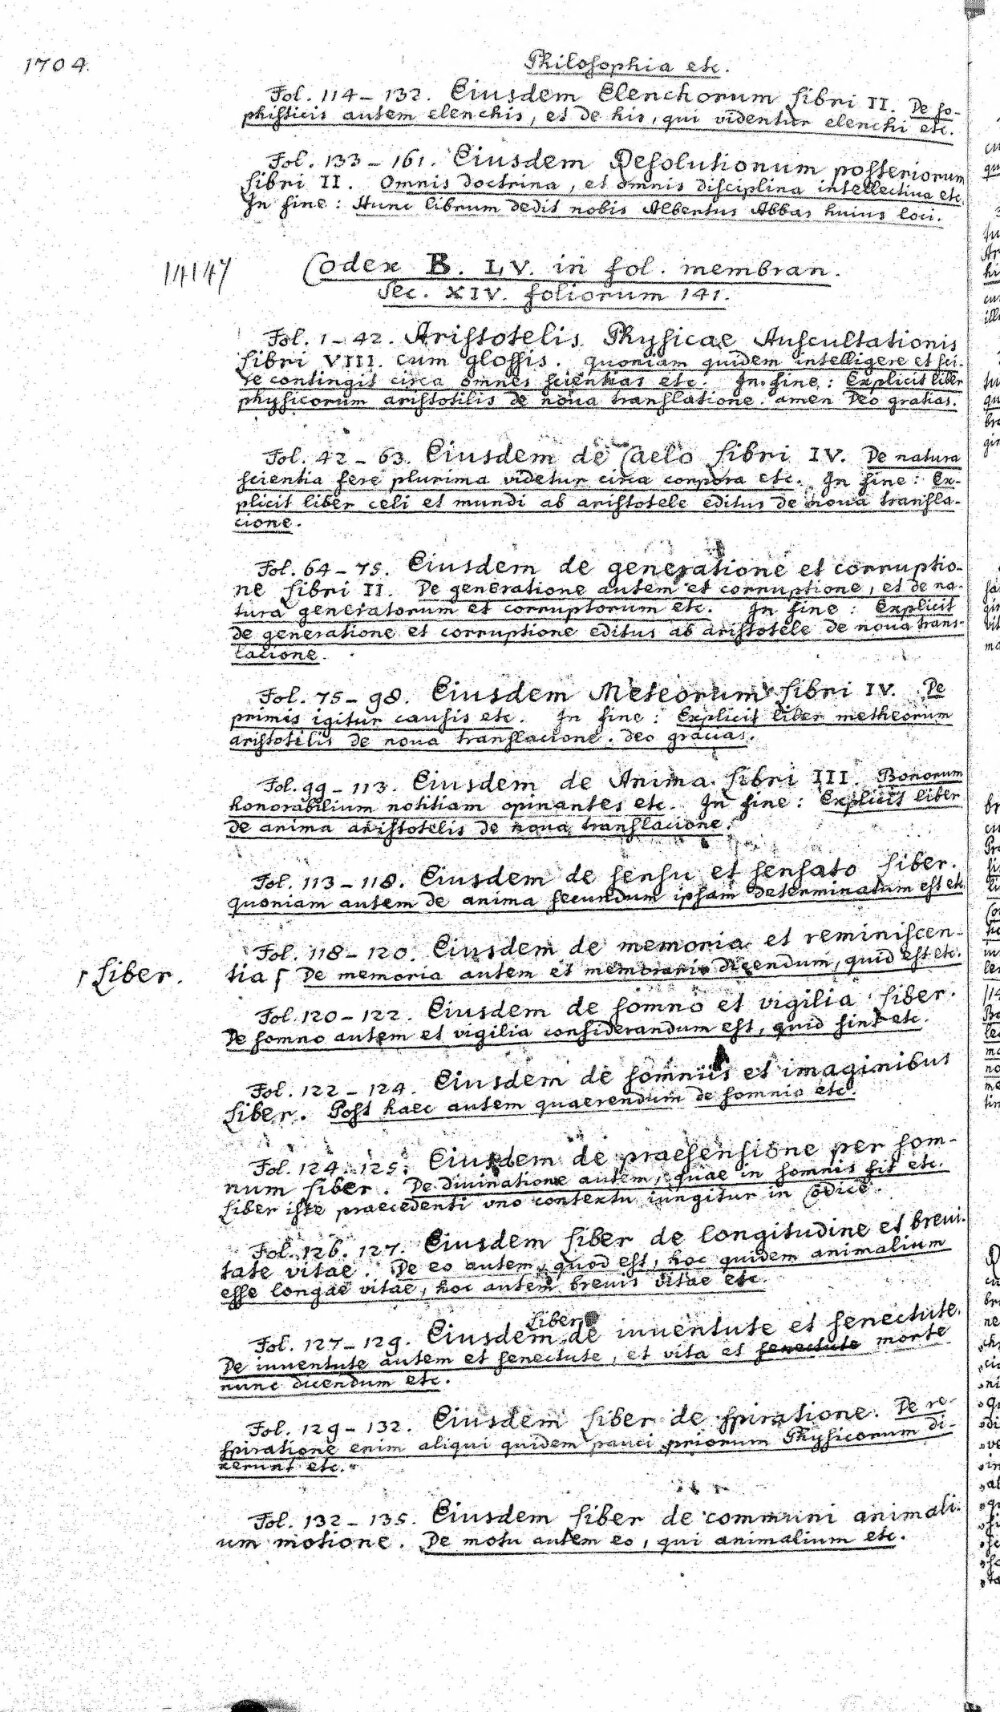 1704.
Philosophia etc.
Fol. 114 – 132. Eiusdem Elenchorum Libri II. De so-
phisticis autem elenchis, et de his, qui videntur elenchi etc.
Fol. 133 – 161. Eiusdem Resolutionum posteriorum
Libri II. Omnis doctrina, et omnis disciplina intellectiva etc.
In fine: Hunc librum dedit nobis Albertus Abbas huius loci.
14147
Codex B. LV. in fol. membran.
Sec. XIV. foliorum 141.
Fol. 1 – 42. Aristotelis Physicae Auscultationis
Libri VIII. cum glossis. quoniam quidem intelligere et sci-
re contingit circa omnes scientias etc. In fine: Explicit liber
physicorum aristotilis de noua translatione. amen Deo gratias.
Fol. 42 – 63. Eiusdem de Caelo Libri IV. De natura
scientia fere plurima videtur circa corpora etc. In fine: Ex-
plicit liber celi et mundi ab aristotele editus de noua transla-
cione.
Fol. 64 – 75. Eiusdem de generatione et corruptio-
ne Libri II. De generatione autem et corruptione, et de na-
tura generatorum et corruptorum etc. In fine: Explicit
de generatione et corruptione editus ab aristotele de noua trans-
lacione.
Fol. 75 – 98. Eiusdem Meteorum Libri IV. De
primis igitur causis etc. In fine: Explicit liber metheorum
aristotilis de noua translacione. deo gracias.
Fol. 99 – 113. Eiusdem de Anima Libri III. Bonorum
honorabilium notitiam opinantes etc. In fine: Explicit liber
de anima aristotelis de noua translacione.
Fol. 113 – 118. Eiusdem de sensu et sensato Liber.
quoniam autem de anima secundum ipsam determinatum est etc.
Fol. 118 – 120. Eiusdem de memoria et reminiscen-
┌ Liber. tia ┌ De memoria autem et memorari dicendum, quid est etc.
Fol. 120 – 122. Eiusdem de somno et vigilia Liber.
De somno autem et vigilia considerandum est, quid sint etc.
Fol. 122 – 124. Eiusdem de somniis et imaginibus
Liber. Post haec autem quaerendum de somnio etc.
Fol. 124. 125. Eiusdem de praesensione per som-
num Liber. De divinatione autem, quae in somnis fit etc.
Liber iste praecedenti vno contextu iungitur in Codice.
Fol. 126. 127. Eiusdem Liber de longitudine et brevi-
tate vitae. De eo autem, quod est, hoc quidem animalium
esse longae vitae, hoc autem brevis vitae etc.
Liber
Fol. 127 – 129. Eiusdem de iuventute et senectute.
De iuventute autem et senectute, et vita et senectute morte
nunc dicendum etc.
Fol. 129 – 132. Eiusdem Liber de spiratione. De re-
spiratione enim aliqui quidem pauci priorum Physicorum di-
xerunt etc.
Fol. 132 – 135. Eiusdem Liber de communi animali-
um motione. De motu autem eo, qui animalium etc.